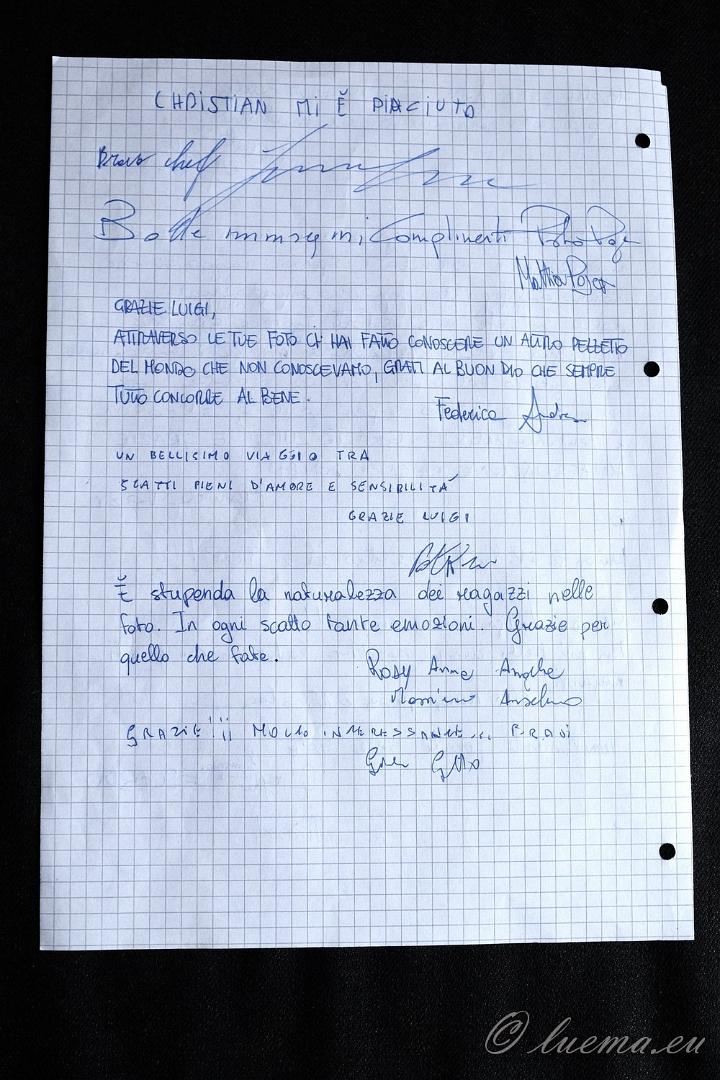 CHRISTIAN MI È PIACIUTO
Bravo chef
Belle immagini, Complimenti
Matthia
GRAZIE LUIGI,
ATTRAVERSO LE TUE FOTO CI HAI FATTO CONOSCERE UN ALTRO PEZZETTO
DEL MONDO CHE NON CONOSCEVAMO, GRATI AL BUON DIO CHE SEMPRE
TUTTO CONCORRE AL BENE.
Federica Andrea
UN BELLISIMO VIAGGIO TRA
SCATTI PIENI D'AMORE E SENSIBILITÁ
GRAZIE LUIGI
È stupenda la naturalezza dei ragazzi nelle
foto. In ogni scatto tante emozioni. Grazie per
quello che fate.
Rosy Anna
Massimo Anselmo
GRAZIE!!! MOLTO INTERESSANTE... BRAVI
© luema.eu